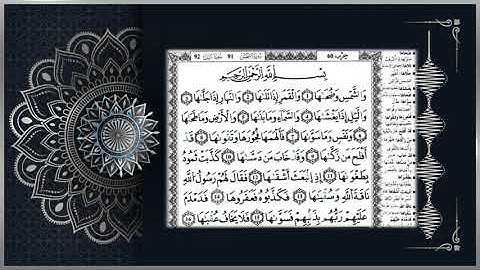 حزب 60 سورة الشمس 91 92
بِسْمِ اللَّهِ الرَّحْمَٰنِ الرَّحِيمِ
وَالشَّمْسِ وَضُحَىٰهَا ① وَالْقَمَرِ إِذَا تَلَىٰهَا ② وَالنَّهَارِ إِذَا جَلَّىٰهَا ③
وَالَّيْلِ إِذَا يَغْشَىٰهَا ④ وَالسَّمَآءِ وَمَا بَنَىٰهَا ⑤ وَالْأَرْضِ وَمَا طَحَىٰهَا
⑥ وَنَفْسٍ وَمَا سَوَّىٰهَا ⑦ فَأَلْهَمَهَا فُجُورَهَا وَتَقْوَىٰهَا ⑧ قَدْ
أَفْلَحَ مَن زَكَّىٰهَا ⑨ وَقَدْ خَابَ مَن دَسَّىٰهَا ⑩ كَذَّبَتْ ثَمُودُ
بِطَغْوَىٰهَآ ⑪ إِذِ انۢبَعَثَ أَشْقَىٰهَا ⑫ فَقَالَ لَهُمْ رَسُولُ اللَّهِ
نَاقَةَ اللَّهِ وَسُقْيَىٰهَا ⑬ فَكَذَّبُوهُ فَعَقَرُوهَا ⑭ فَدَمْدَمَ
عَلَيْهِمْ رَبُّهُم بِذَنۢبِهِمْ فَسَوَّىٰهَا ⑮ فَلَا يَخَافُ عُقْبَىٰهَا